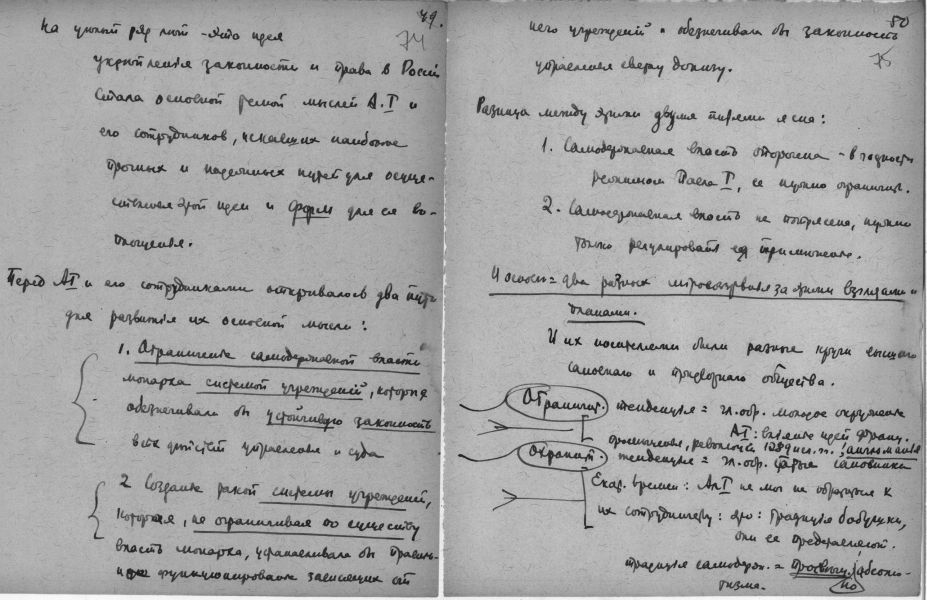 49.
74
укрепления законности и права в России
стала основной темой мыслей А.I и
его сотрудников, искавших наиболее
прочных и надежных путей для осуще-
ствления этой идеи и форм для ее во-
площенья.
Перед АI и его сотрудниками открывалось два пути
для развития их основной мысли:
1. Ограничение самодержавной власти
монарха системой учреждений, которая
обезпечивала бы устойчивую законность
всех действий управления и суда
2 Создание такой системы учреждений,
которая, не ограничивая по существу
власть монарха, устанавливала бы правиль-
ное функционирование зависящих от
50
75
него учреждений и обезпечивала бы законность
управления сверху донизу.
Разница между этими двумя путями ясна:
1. Самодержавная власть опорочена - в частности
режимом Павла I, ее нужно ограничить.
2. Самодержавная власть не потрясена, нужно
только регулировать ее применение.
И основы = два разных мировоззрения за этими взглядами и
планами.
И их носителями были разные круги высшего
сановного и придворного общества.
Ограничит. тенденция = гл. обр. молодое окружение
АI: влияние идей франц.
просвещения, революции 1789 англомания
Охранит. тенденция = гл. обр. старые сановники
Екат. времени: Ал.I не мог не обратиться к
их сотрудничеству: это: традиция бабушки,
они ее представляют.
традиция самодерж. = просвещ. абсолю-
тизма. но